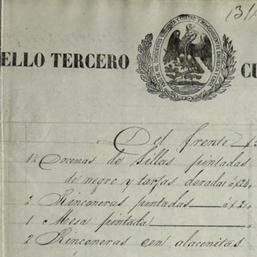 131
ELLO TERCERO
CU
Del frente $
1½ Docenas de Sillas pintadas
de negro y tarjas doradas á $24,
2 Rinconeras pintadas á $2,
1 Mesa pintada
2 Rinconeras con alacenitas